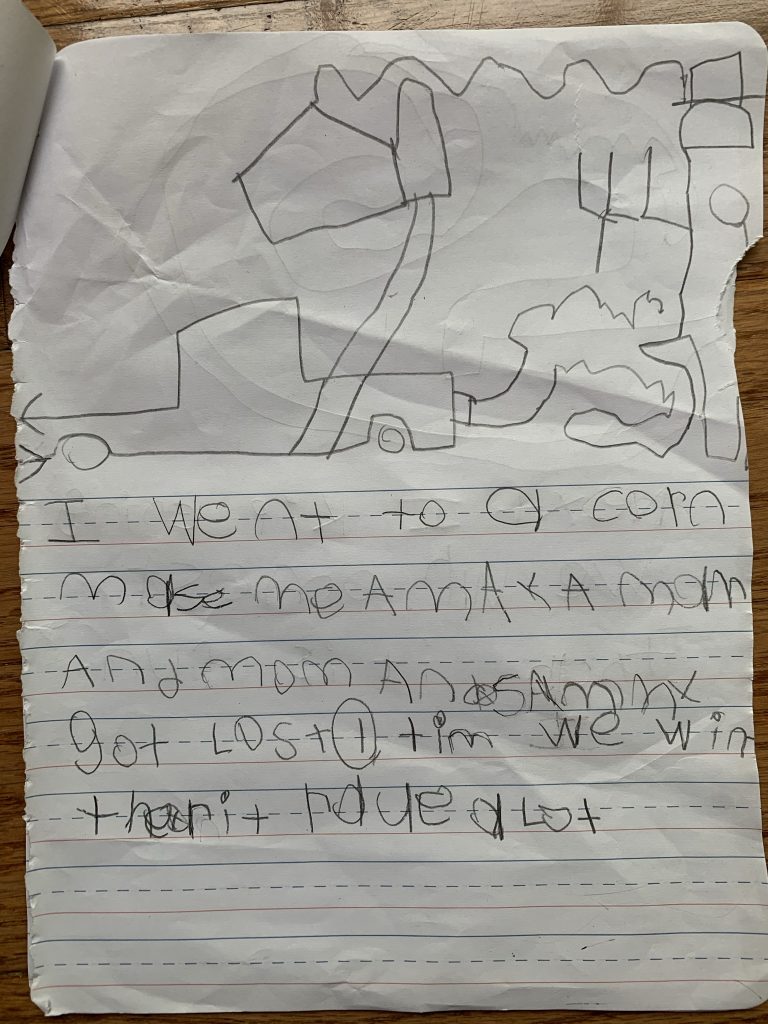 I went to a corn
make me AMAKA mom
And mom And SAmmy
got Lost 1 tim we win
it a Lot